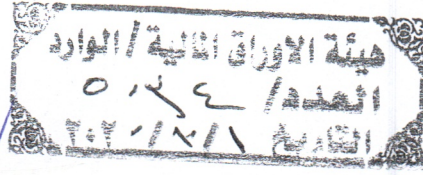 هيئة الاوراق المالية / الوارد
العدد /
التاريخ ١ / /٢٠٢٠